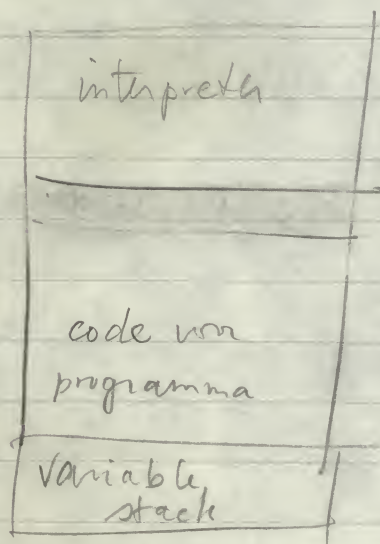 interpreter
code voor
programma
variable
stack